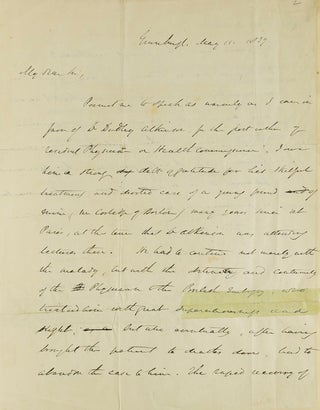 2
May 11. 1839
My dear Sir,
Permit me to speak as warmly as I can in
favor of Dr Dudley Atkinson for the post either of
resident Physician or Health Commissioner. I owe
him a strong debt of gratitude for his skilful
treatment and devoted care of a young friend of
mine, of Boston, many years since at
Paris, at the time that Dr Atkinson was attending
lectures there. He had to contend not merely with
the malady, but with the and
of the Physician to the British Embassy who
treated him with great superciliousness and
slight, but who eventually, after having
brought the patient to deaths door, had to
abandon the case to him. The rapid recovery of